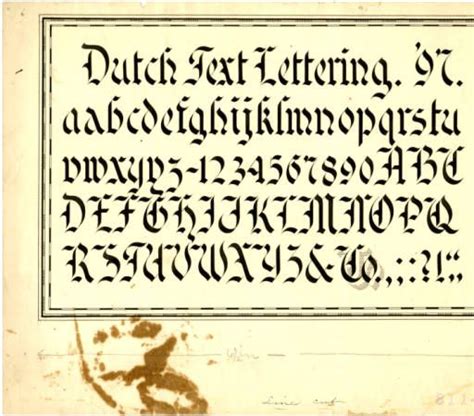 Dutch Text Lettering. '97.
aabcdefghijklmnopqrstu
vwxyyz-1234567890ABC
DEFGHIJKLMNOPQ
RSTUVWXYZ&Co.,;:?!"